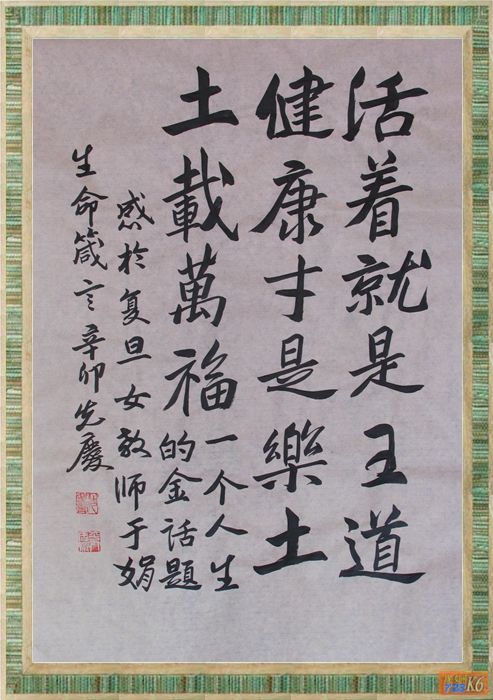 活着就是王道
健康才是樂土
土載萬福
一个人生
的金话题
感於复旦女教师于娟
生命箴言辛卯先慶
K6